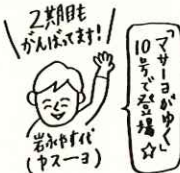 2期目も
がんばってます!
「マサーヨがゆく」
10号で登場☆
岩永やす代
(ヤスーヨ)